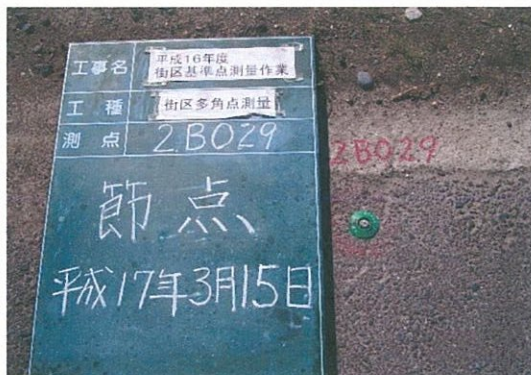 工事名
平成16年度
街区基準点測量作業
工種
街区多角点測量
測点
2B029
2B029
節点
平成17年3月15日